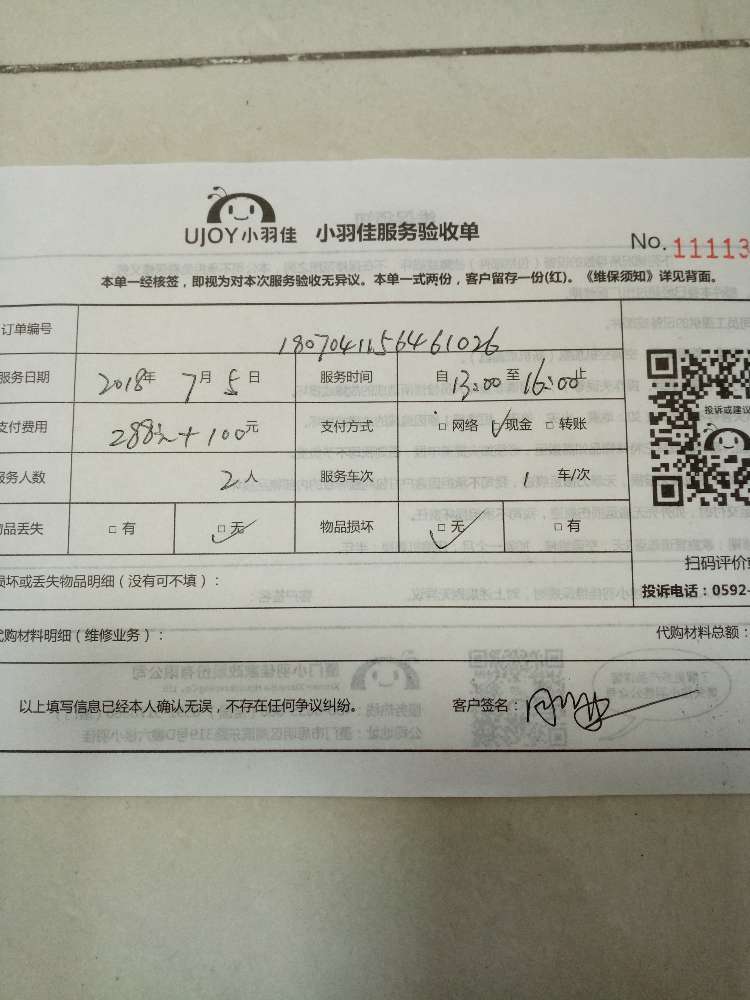 UJOY小羽佳 小羽佳服务验收单
No. 11113
本单一经核签，即视为对本次服务验收无异议。本单一式两份，客户留存一份(红)。《维保须知》详见背面。
订单编号 1807041156461026
服务日期 2018年 7月 5日 服务时间 自13:00至16:00止
支付费用 288元+100元 支付方式 □网络 ☑现金 □转账
投诉或建议
服务人数 2人 服务车次 1 车/次
物品丢失 □有 ☑无 物品损坏 ☑无 □有
扫码评价
损坏或丢失物品明细（没有可不填）：
投诉电话：0592-
代购材料明细（维修业务）： 代购材料总额：
以上填写信息已经本人确认无误，不存在任何争议纠纷。 客户签名：